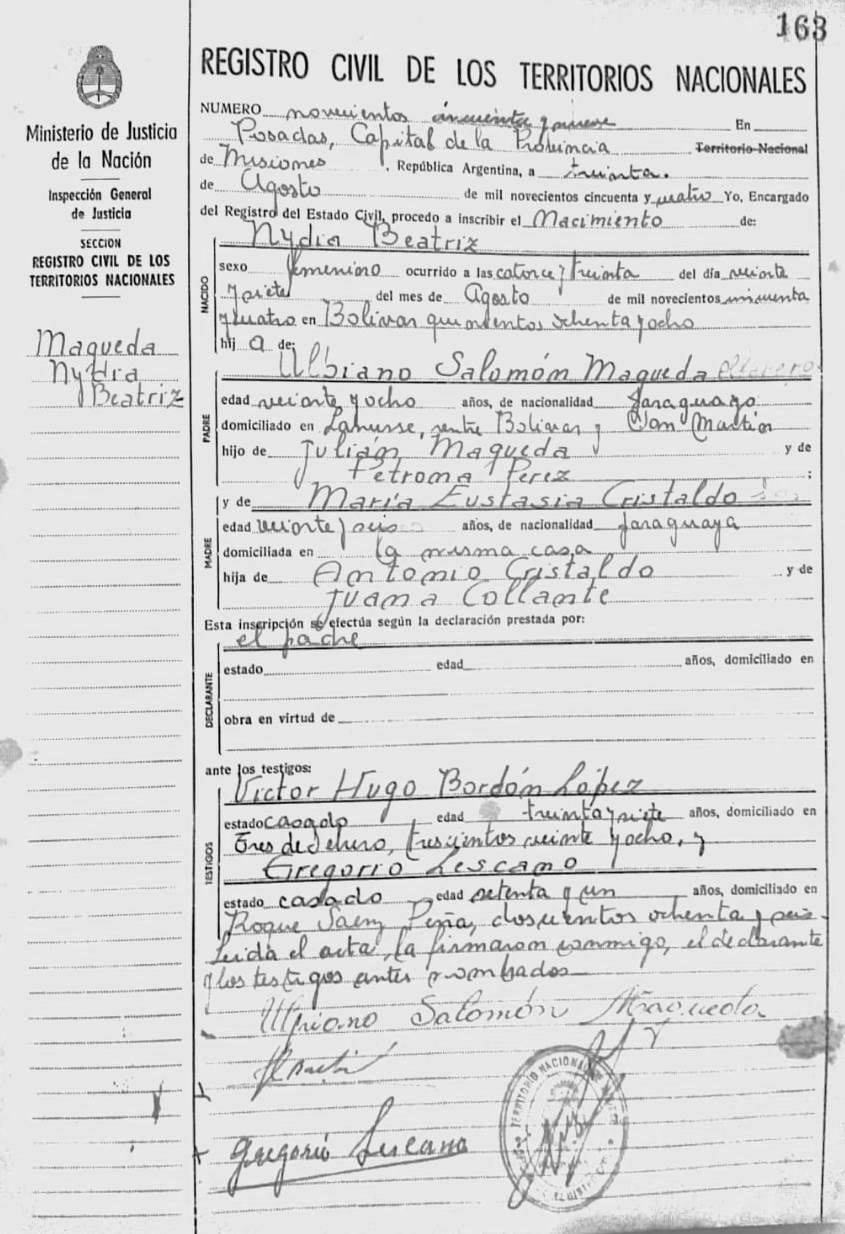 163
Ministerio de Justicia
de la Nación
Inspección General
de Justicia
SECCION
REGISTRO CIVIL DE LOS
TERRITORIOS NACIONALES
Maqueda
Nydia
Beatriz
REGISTRO CIVIL DE LOS TERRITORIOS NACIONALES
NUMERO novecientos cincuenta y nueve En
Posadas, Capital de la Provincia Territorio Nacional
de Misiones, República Argentina, a treinta.
de Agosto de mil novecientos cincuenta y cuatro Yo, Encargado
del Registro del Estado Civil, procedo a inscribir el Nacimiento de:
Nydia Beatriz
NACIDO
sexo femenino ocurrido a las catorce y treinta del día veinte
y siete del mes de Agosto de mil novecientos cincuenta
y cuatro en Bolivar quinientos ochenta y ocho
hij a de:
Albiano Salomón Maqueda
PADRE
edad veinte y ocho años, de nacionalidad paraguayo
domiciliado en Lanusse, entre Bolivar y San Martín
hijo de Julián Maqueda y de
Petrona Perez ;
y de María Eustasia Cristaldo
MADRE
edad veinte y seis años, de nacionalidad paraguaya
domiciliada en la misma casa
hija de Antonio Cristaldo y de
Juana Collante
Esta inscripción se efectúa según la declaración prestada por:
el padre
DECLARANTE
estado edad años, domiciliado en
obra en virtud de
ante los testigos:
Victor Hugo Bordón López
TESTIGOS
estado casado edad treinta y siete años, domiciliado en
Tres de Febrero, trescientos veinte y ocho, y
Gregorio Lescano
estado casado edad setenta y un años, domiciliado en
Roque Saenz Peña, doscientos ochenta y seis.
Leida el acta, la firmaron conmigo, el declarante
y los testigos antes nombrados
Salomón Maqueda
Gregorio Lescano
TERRITORIO NACIONAL DE